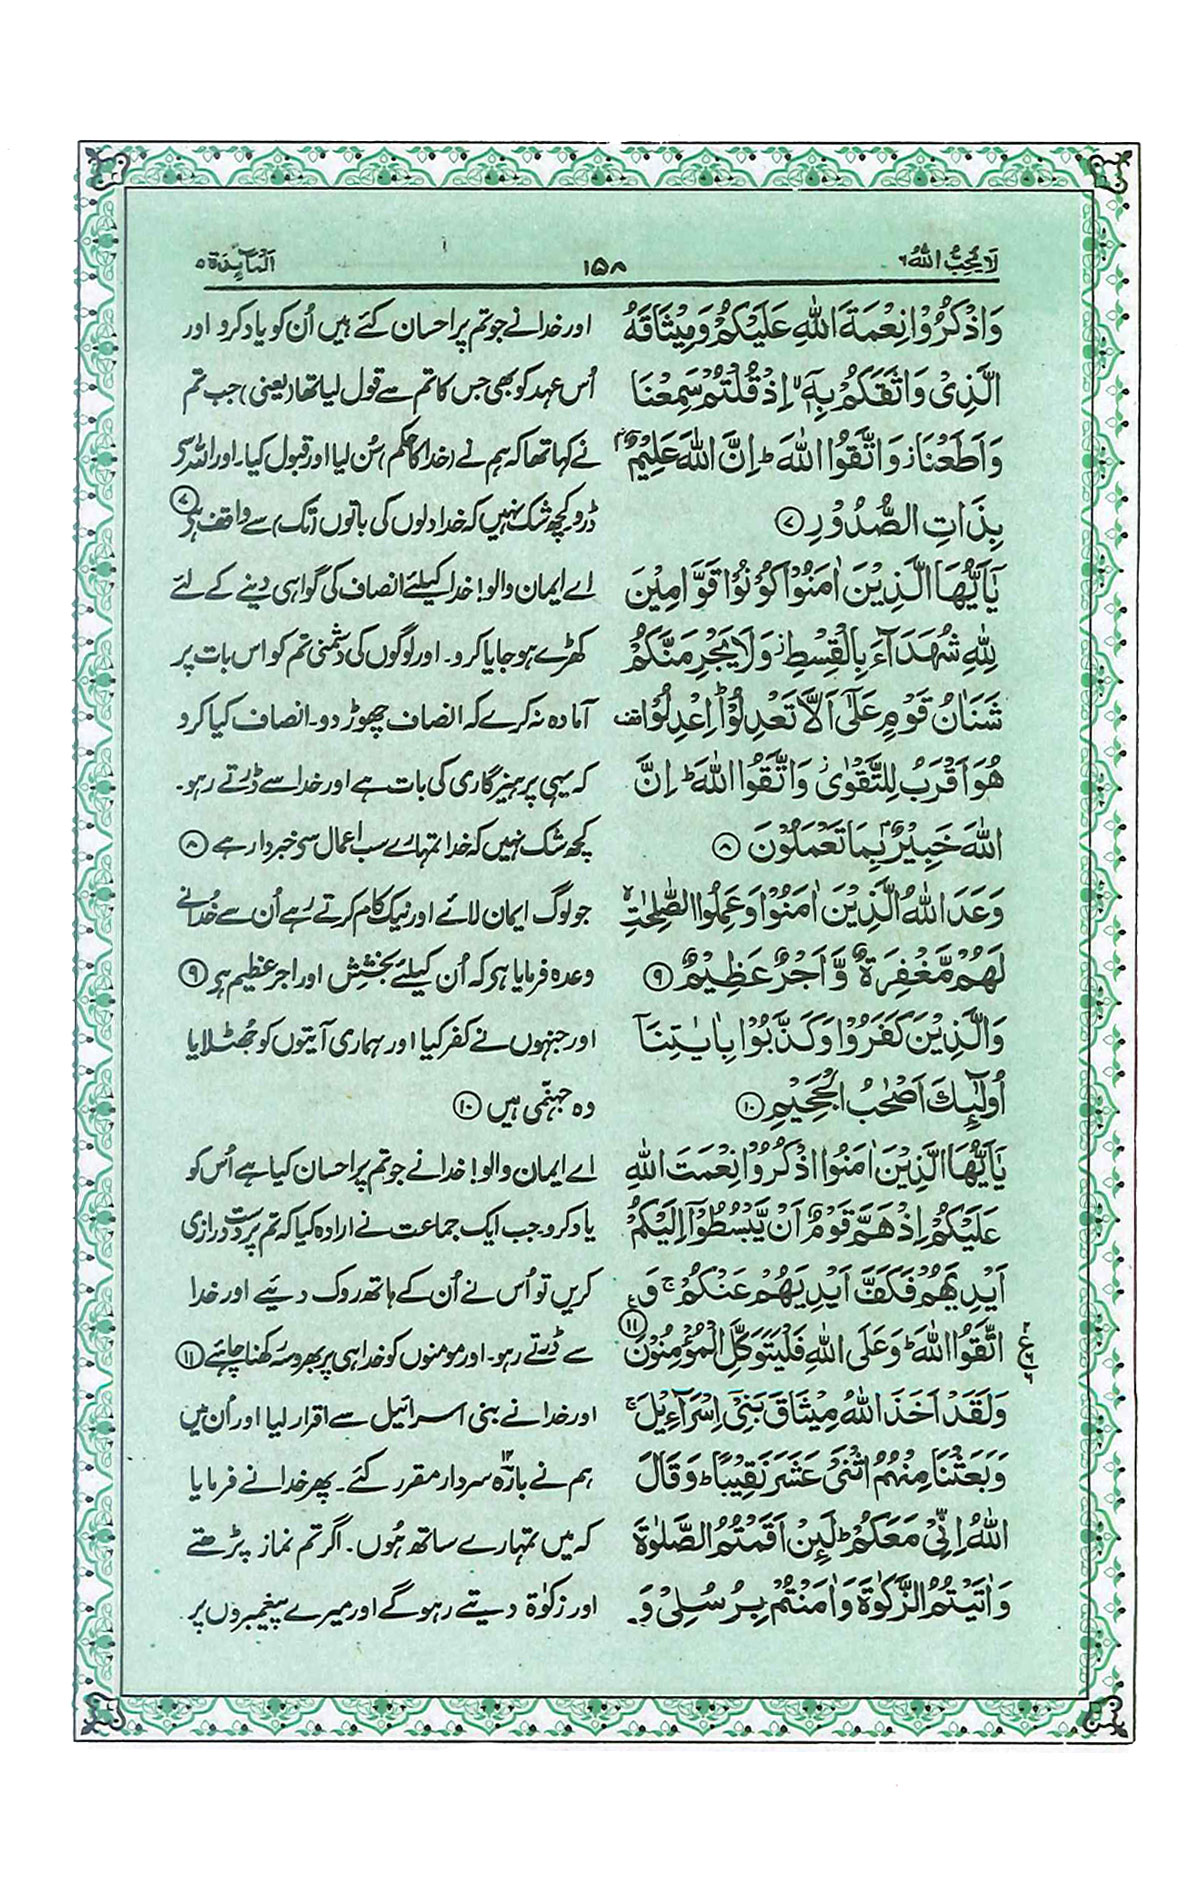 لَا يُحِبُّ اللهُ ٦
١٥٨
اَلْمَآئِدَة ٥
وَاذْكُرُوْا نِعْمَةَ اللّٰهِ عَلَيْكُمْ وَمِيْثَاقَهُ
الَّذِيْ وَاثَقَكُمْ بِهٖۤ ۙ اِذْ قُلْتُمْ سَمِعْنَا
وَاَطَعْنَا ۡ وَاتَّقُوا اللّٰهَ ؕ اِنَّ اللّٰهَ عَلِيْمٌۢ
بِذَاتِ الصُّدُوْرِ ۷
يٰۤاَيُّهَا الَّذِيْنَ اٰمَنُوْا كُوْنُوْا قَوّٰمِيْنَ
لِلّٰهِ شُهَدَآءَ بِالْقِسْطِ ۡ وَلَا يَجْرِمَنَّكُمْ
شَنَاٰنُ قَوْمٍ عَلٰۤى اَلَّا تَعْدِلُوْا ؕ اِعْدِلُوْا قف
هُوَ اَقْرَبُ لِلتَّقْوٰى ۡ وَاتَّقُوا اللّٰهَ ؕ اِنَّ
اللّٰهَ خَبِيْرٌۢ بِمَا تَعْمَلُوْنَ ۸
وَعَدَ اللّٰهُ الَّذِيْنَ اٰمَنُوْا وَعَمِلُوا الصّٰلِحٰتِ ۙ
لَهُمْ مَّغْفِرَةٌ وَّاَجْرٌ عَظِيْمٌ ۹
وَالَّذِيْنَ كَفَرُوْا وَكَذَّبُوْا بِاٰيٰتِنَاۤ
اُولٰٓئِكَ اَصْحٰبُ الْجَحِيْمِ ۱۰
يٰۤاَيُّهَا الَّذِيْنَ اٰمَنُوا اذْكُرُوْا نِعْمَتَ اللّٰهِ
عَلَيْكُمْ اِذْ هَمَّ قَوْمٌ اَنْ يَّبْسُطُوْۤا اِلَيْكُمْ
اَيْدِيَهُمْ فَكَفَّ اَيْدِيَهُمْ عَنْكُمْ ۚ وَ
اتَّقُوا اللّٰهَ ؕ وَعَلَى اللّٰهِ فَلْيَتَوَكَّلِ الْمُؤْمِنُوْنَ ۱۱
وَلَقَدْ اَخَذَ اللّٰهُ مِيْثَاقَ بَنِيْۤ اِسْرَآءِيْلَ ۚ
وَبَعَثْنَا مِنْهُمُ اثْنَيْ عَشَرَ نَقِيْبًا ؕ وَقَالَ
اللّٰهُ اِنِّيْ مَعَكُمْ ؕ لَئِنْ اَقَمْتُمُ الصَّلٰوةَ
وَاٰتَيْتُمُ الزَّكٰوةَ وَاٰمَنْتُمْ بِرُسُلِيْ وَ
اور خدا نے جو تم پر احسان کئے ہیں اُن کو یاد کرو اور
اُس عہد کو بھی جس کا تم سے قول لیا تھا (یعنی) جب تم
نے کہا تھا کہ ہم نے (خدا کا حکم) سُن لیا اور قبول کیا۔ اور اللہ سے
ڈرو کچھ شک نہیں کہ خدا دلوں کی باتوں (تک) سے واقف ہے ۷
اے ایمان والو! خدا کیلئے انصاف کی گواہی دینے کے لئے
کھڑے ہو جایا کرو۔ اور لوگوں کی دشمنی تم کو اس بات پر
آمادہ نہ کرے کہ انصاف چھوڑ دو۔ انصاف کیا کرو
کہ یہی پرہیزگاری کی بات ہے اور خدا سے ڈرتے رہو۔
کچھ شک نہیں کہ خدا تمہارے سب اعمال سے خبردار ہے ۸
جو لوگ ایمان لائے اور نیک کام کرتے رہے اُن سے خدا نے
وعدہ فرمایا ہے کہ اُن کیلئے بخشش اور اجر عظیم ہے ۹
اور جنہوں نے کفر کیا اور ہماری آیتوں کو جھٹلایا
وہ جہنّمی ہیں ۱۰
اے ایمان والو! خدا نے جو تم پر احسان کیا ہے اُس کو
یاد کرو۔ جب ایک جماعت نے ارادہ کیا کہ تم پر دست درازی
کریں تو اُس نے اُن کے ہاتھ روک دیئے اور خدا
سے ڈرتے رہو۔ اور مومنوں کو خدا ہی پر بھروسہ رکھنا چاہئے ۱۱
اور خدا نے بنی اسرائیل سے اقرار لیا اور اُن میں
ہم نے بارہ ۱۲ سردار مقرر کئے۔ پھر خدا نے فرمایا
کہ میں تمہارے ساتھ ہُوں۔ اگر تم نماز پڑھتے
اور زکوٰۃ دیتے رہو گے اور میرے پیغمبروں پر